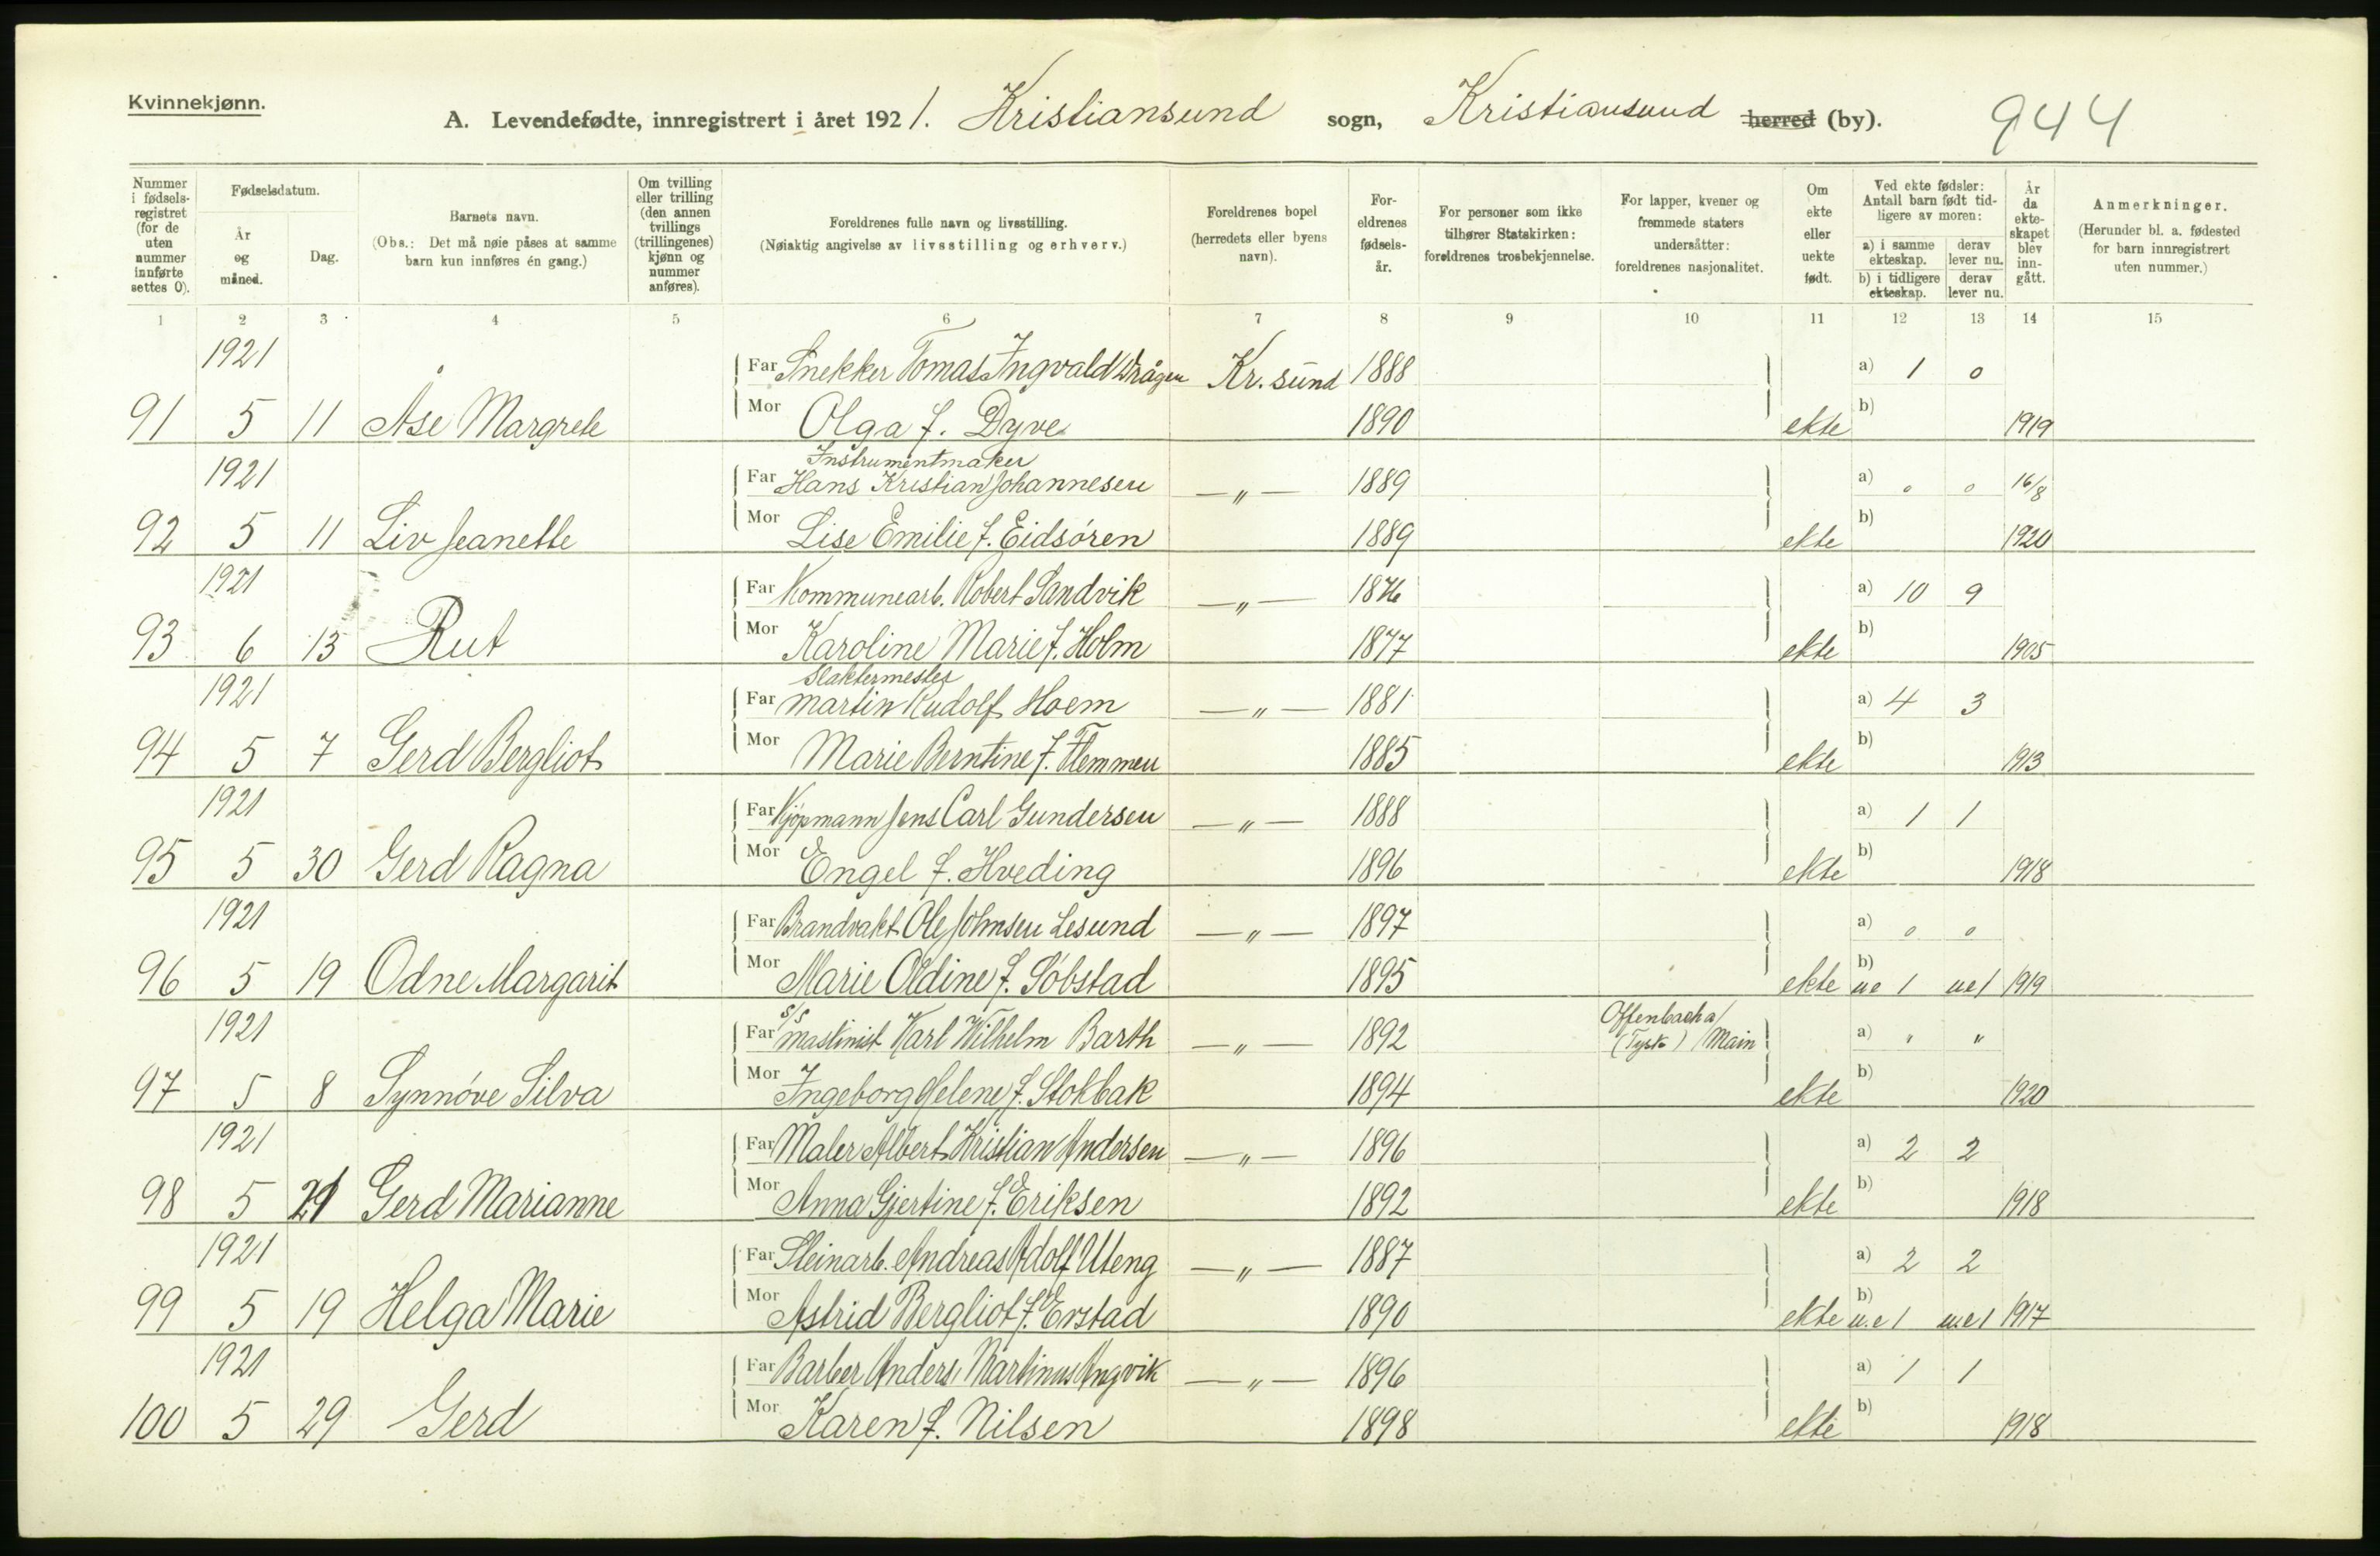 Kvinnekjønn.
A. Levendefødte, innregistrert i året 1921. Kristiansund sogn, Kristiansund herred (by). 944
Nummer i fødselsregistret (for de uten nummer innførte settes 0).
Fødselsdatum.
År og måned.
Dag.
Barnets navn.
(Obs.: Det må nøie påses at samme barn kun innføres én gang.)
Om tvilling eller trilling (den annen tvillings (trillingenes) kjønn og nummer anføres).
Foreldrenes fulle navn og livsstilling.
(Nøiaktig angivelse av livsstilling og erhverv.)
Foreldrenes bopel (herredets eller byens navn).
Foreldrenes fødselsår.
For personer som ikke tilhører Statskirken: foreldrenes trosbekjennelse.
For lapper, kvener og fremmede staters undersåtter: foreldrenes nasjonalitet.
Om ekte eller uekte født.
Ved ekte fødsler: Antall barn født tidligere av moren:
a) i samme ekteskap. derav lever nu.
b) i tidligere ekteskap. derav lever nu.
År da ekteskapet blev inngått.
Anmerkninger.
(Herunder bl. a. fødested for barn innregistrert uten nummer.)
1 2 3 4 5 6 7 8 9 10 11 12 13 14 15
1921 Far Snekker Tomas Ingvald Drågen Kr. sund 1888 a) 1 0
91 5 11 Åse Margrete Mor Olga f. Dyve 1890 ekte b) 1919
Instrumentmaker
1921 Far Hans Kristian Johannesen —„— 1889 a) 0 0 16/8
92 5 11 Liv Jeanette Mor Lise Emilie f. Eidsören 1889 ekte b) 1920
1921 Far Kommunearb. Robert Sandvik —„— 1876 a) 10 9
93 6 13 Rut Mor Karoline Marie f. Holm 1877 ekte b) 1905
Slaktermester
1921 Far Martin Rudolf Hoem —„— 1881 a) 4 3
94 5 7 Gerd Bergliot Mor Marie Berntine f. Flemmen 1885 ekte b) 1913
1921 Far Kjöpmann Jens Carl Gundersen —„— 1888 a) 1 1
95 5 30 Gerd Ragna Mor Engel f. Hveding 1896 ekte b) 1918
1921 Far Brandvakt Ole Johnsen Lesund —„— 1897 a) 0 0
96 5 19 Odne Margarit Mor Marie Oldine f. Söbstad 1895 ekte b) ue 1 ue 1 1919
1921 Far s/s maskinist Karl Wilhelm Barth —„— 1892 Offenbach a/ Main (Tysk) a) " "
97 5 8 Synnöve Silva Mor Ingeborg Helene f. Stokbak 1894 ekte b) 1920
1921 Far Maler Albert Kristian Andersen —„— 1896 a) 2 2
98 5 21 Gerd Marianne Mor Anna Gjertine f. Eriksen 1892 ekte b) 1918
1921 Far Steinarb. Andreas Adolf Uteng —„— 1887 a) 2 2
99 5 19 Helga Marie Mor Astrid Bergliot f. Erstad 1890 ekte b) u.e 1 u.e 1 1917
1921 Far Barber Anders Martinus Angvik —„— 1896 a) 1 1
100 5 29 Gerd Mor Karen f. Nilsen 1898 ekte b) 1918